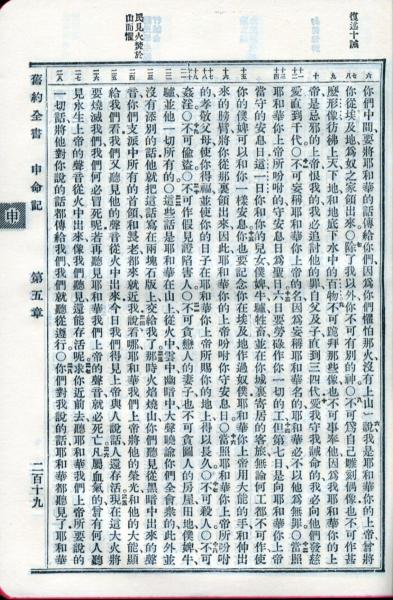 復述十誡
民見火焚於
山而懼
你們中間要將耶和華的話傳給你們因為你們懼怕那火沒有上山○說我是耶和華你的上帝曾將
你從埃及地為奴之家領出來○除了我以外你不可有別的神○不可為自己雕刻偶像也不可作甚
麼形像彷彿上天下地和地底下水中的百物不可跪拜那些像也不可事奉他因為我耶和華你的上
帝是忌邪的上帝恨我的我必追討他的罪自父及子直到三四代愛我守我誡命的我必向他們發慈
愛直到千代○不可妄稱耶和華你上帝的名因為妄稱耶和華名的耶和華必不以他為無罪○當照
耶和華你上帝所吩咐的守安息日為聖日六日要勞碌作你一切的工但第七日是向耶和華你上帝
當守的安息日這一日你和你的兒女僕婢牛驢牲畜並在你城裏寄居的客旅無論何工都不可作使
你的僕婢可以和你一樣安息你也要記念你在埃及地作過奴僕耶和華你上帝用大能的手和伸出
來的膀臂將你從那裏領出來因此耶和華你的上帝吩咐你守安息日○當照耶和華你上帝所吩咐
的孝敬父母使你得福並使你的日子在耶和華你上帝所賜你的地上得以長久○不可殺人○不可
姦淫○不可偷盜○不可作假見證陷害人○不可貪戀人的妻子也不可貪圖人的房屋田地僕婢牛
驢並他一切所有的○這些話是耶和華在山上從火中雲中幽暗中大聲曉諭你們全會眾的此外並
沒有添別的話他就把這話寫在兩塊石版上交給我了那時火焰燒山你們聽見從黑暗中出來的聲
音你們支派中所有的首領和長老都來近我說看哪耶和華我們上帝將他的榮光和他的大能顯
給我們看我們又聽見他的聲音從火中出來今日我們得見上帝與人說話人還存活現在這大火將
要燒滅我們我們何必冒死呢若再聽見耶和華我們上帝的聲音就必死亡凡屬血氣的曾有何人聽
見永生上帝的聲音從火中出來像我們聽見還能存活呢求你近前去聽耶和華我們上帝所要說的
一切話將他對你說的話都傳給我們我們就聽從遵行○你們對我說的話耶和華都聽見了耶和華
舊約全書 申命記 第五章 二百十九
申